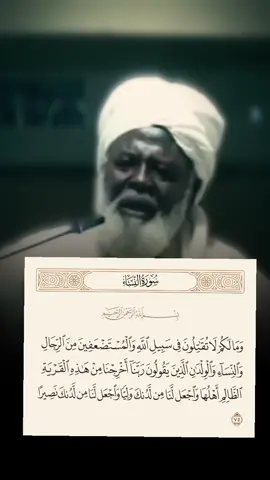 سُورَةُ النِّسَاءِ
بِسْمِ اللَّهِ الرَّحْمَٰنِ الرَّحِيمِ
وَمَا لَكُمْ لَا تُقَٰتِلُونَ فِى سَبِيلِ ٱللَّهِ وَٱلْمُسْتَضْعَفِينَ مِنَ ٱلرِّجَالِ
وَٱلنِّسَآءِ وَٱلْوِلْدَٰنِ ٱلَّذِينَ يَقُولُونَ رَبَّنَآ أَخْرِجْنَا مِنْ هَٰذِهِ ٱلْقَرْيَةِ
ٱلظَّالِمِ أَهْلُهَا وَٱجْعَل لَّنَا مِن لَّدُنكَ وَلِيًّا وَٱجْعَل لَّنَا مِن لَّدُنكَ نَصِيرًا
٧٥